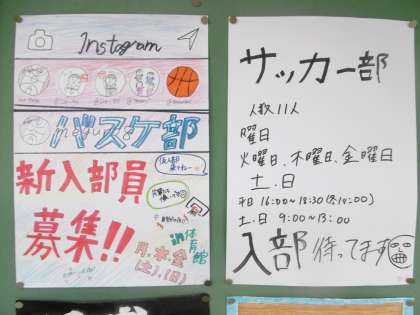 Instagram
バスケ部
新入部員
募集!!
in体育館
月、水、金
(土)、(日)
サッカー部
人数 11人
曜日
火曜日、木曜日、金曜日
土、日
平日 16:00〜18:30
土、日 9:00〜13:00
入部待ってます